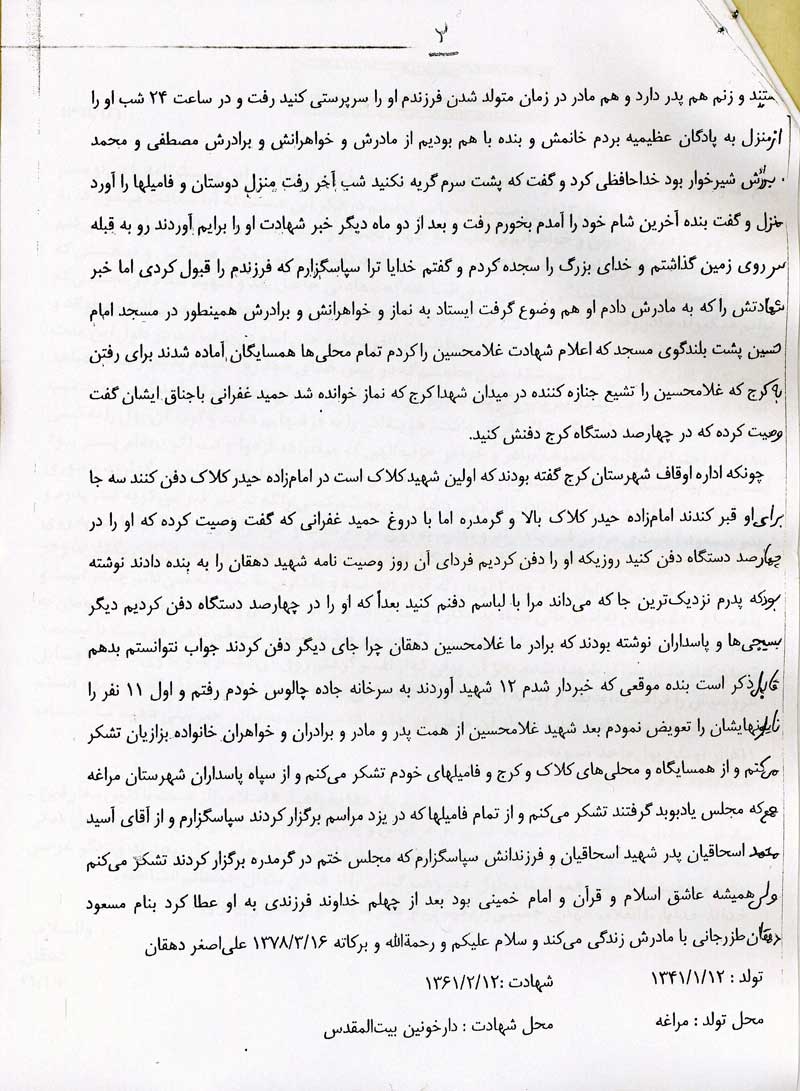 ۲
ستند و زنم هم پدر دارد و هم مادر در زمان متولد شدن فرزندم او را سرپرستی کنید رفت و در ساعت ۲۴ شب او را
از منزل به پادگان عظیمیه بردم خانمش و بنده با هم بودیم از مادرش و خواهرانش و برادرش مصطفی و محمد
شیرخوار بود خداحافظی کرد و گفت که پشت سرم گریه نکنید شب آخر رفت منزل دوستان و فامیلها را آورد
منزل و گفت بنده آخرین شام خود را آمدم بخورم رفت و بعد از دو ماه دیگر خبر شهادت او را برایم آوردند رو به قبله
سر روی زمین گذاشتم و خدای بزرگ را سجده کردم و گفتم خدایا ترا سپاسگزارم که فرزندم را قبول کردی اما خبر
شهادتش را که به مادرش دادم او هم وضوع گرفت ایستاد به نماز و خواهرانش و برادرش همینطور در مسجد امام
حسین پشت بلندگوی مسجد که اعلام شهادت غلامحسین را کردم تمام محلی‌ها همسایگان آماده شدند برای رفتن
به کرج که غلامحسین را تشیع جنازه کننده در میدان شهدا کرج که نماز خوانده شد حمید غفرانی باجناق ایشان گفت
وصیت کرده که در چهارصد دستگاه کرج دفنش کنید.
چونکه اداره اوقاف شهرستان کرج گفته بودند که اولین شهید کلاک است در امام‌زاده حیدر کلاک دفن کنند سه جا
برای او قبر کندند امام‌زاده حیدر کلاک بالا و گرمدره اما با دروغ حمید غفرانی که گفت وصیت کرده که او را در
چهارصد دستگاه دفن کنید روزیکه او را دفن کردیم فردای آن روز وصیت نامه شهید دهقان را به بنده دادند نوشته
بود که پدرم نزدیک‌ترین جا که می‌داند مرا با لباسم دفنم کنید بعداً که او را در چهارصد دستگاه دفن کردیم دیگر
بسیجی‌ها و پاسداران نوشته بودند که برادر ما غلامحسین دهقان چرا جای دیگر دفن کردند جواب نتوانستم بدهم
قابل ذکر است بنده موقعی که خبردار شدم ۱۲ شهید آوردند به سرخانه جاده چالوس خودم رفتم و اول ۱۱ نفر را
نایلونهایشان را تعویض نمودم بعد شهید غلامحسین از همت پدر و مادر و برادران و خواهران خانواده بزازیان تشکر
می‌کنم و از همسایگاه و محلی‌های کلاک و کرج و فامیلهای خودم تشکر می‌کنم و از سپاه پاسداران شهرستان مراغه
هم که مجلس یادبوبد گرفتند تشکر می‌کنم و از تمام فامیلها که در یزد مراسم برگزار کردند سپاسگزارم و از آقای آسید
محمد اسحاقیان پدر شهید اسحاقیان و فرزندانش سپاسگزارم که مجلس ختم در گرمدره برگزار کردند تشکر می‌کنم
ولی همیشه عاشق اسلام و قرآن و امام خمینی بود بعد از چهلم خداوند فرزندی به او عطا کرد بنام مسعود
دهقان طزرجانی با مادرش زندگی می‌کند و سلام علیکم و رحمةالله و برکاته ۱۳۷۸/۳/۱۶ علی‌اصغر دهقان
تولد : ۱۳۴۱/۱/۱۲ شهادت :۱۳۶۱/۲/۱۲
محل تولد : مراغه محل شهادت : دارخونین بیت‌المقدس